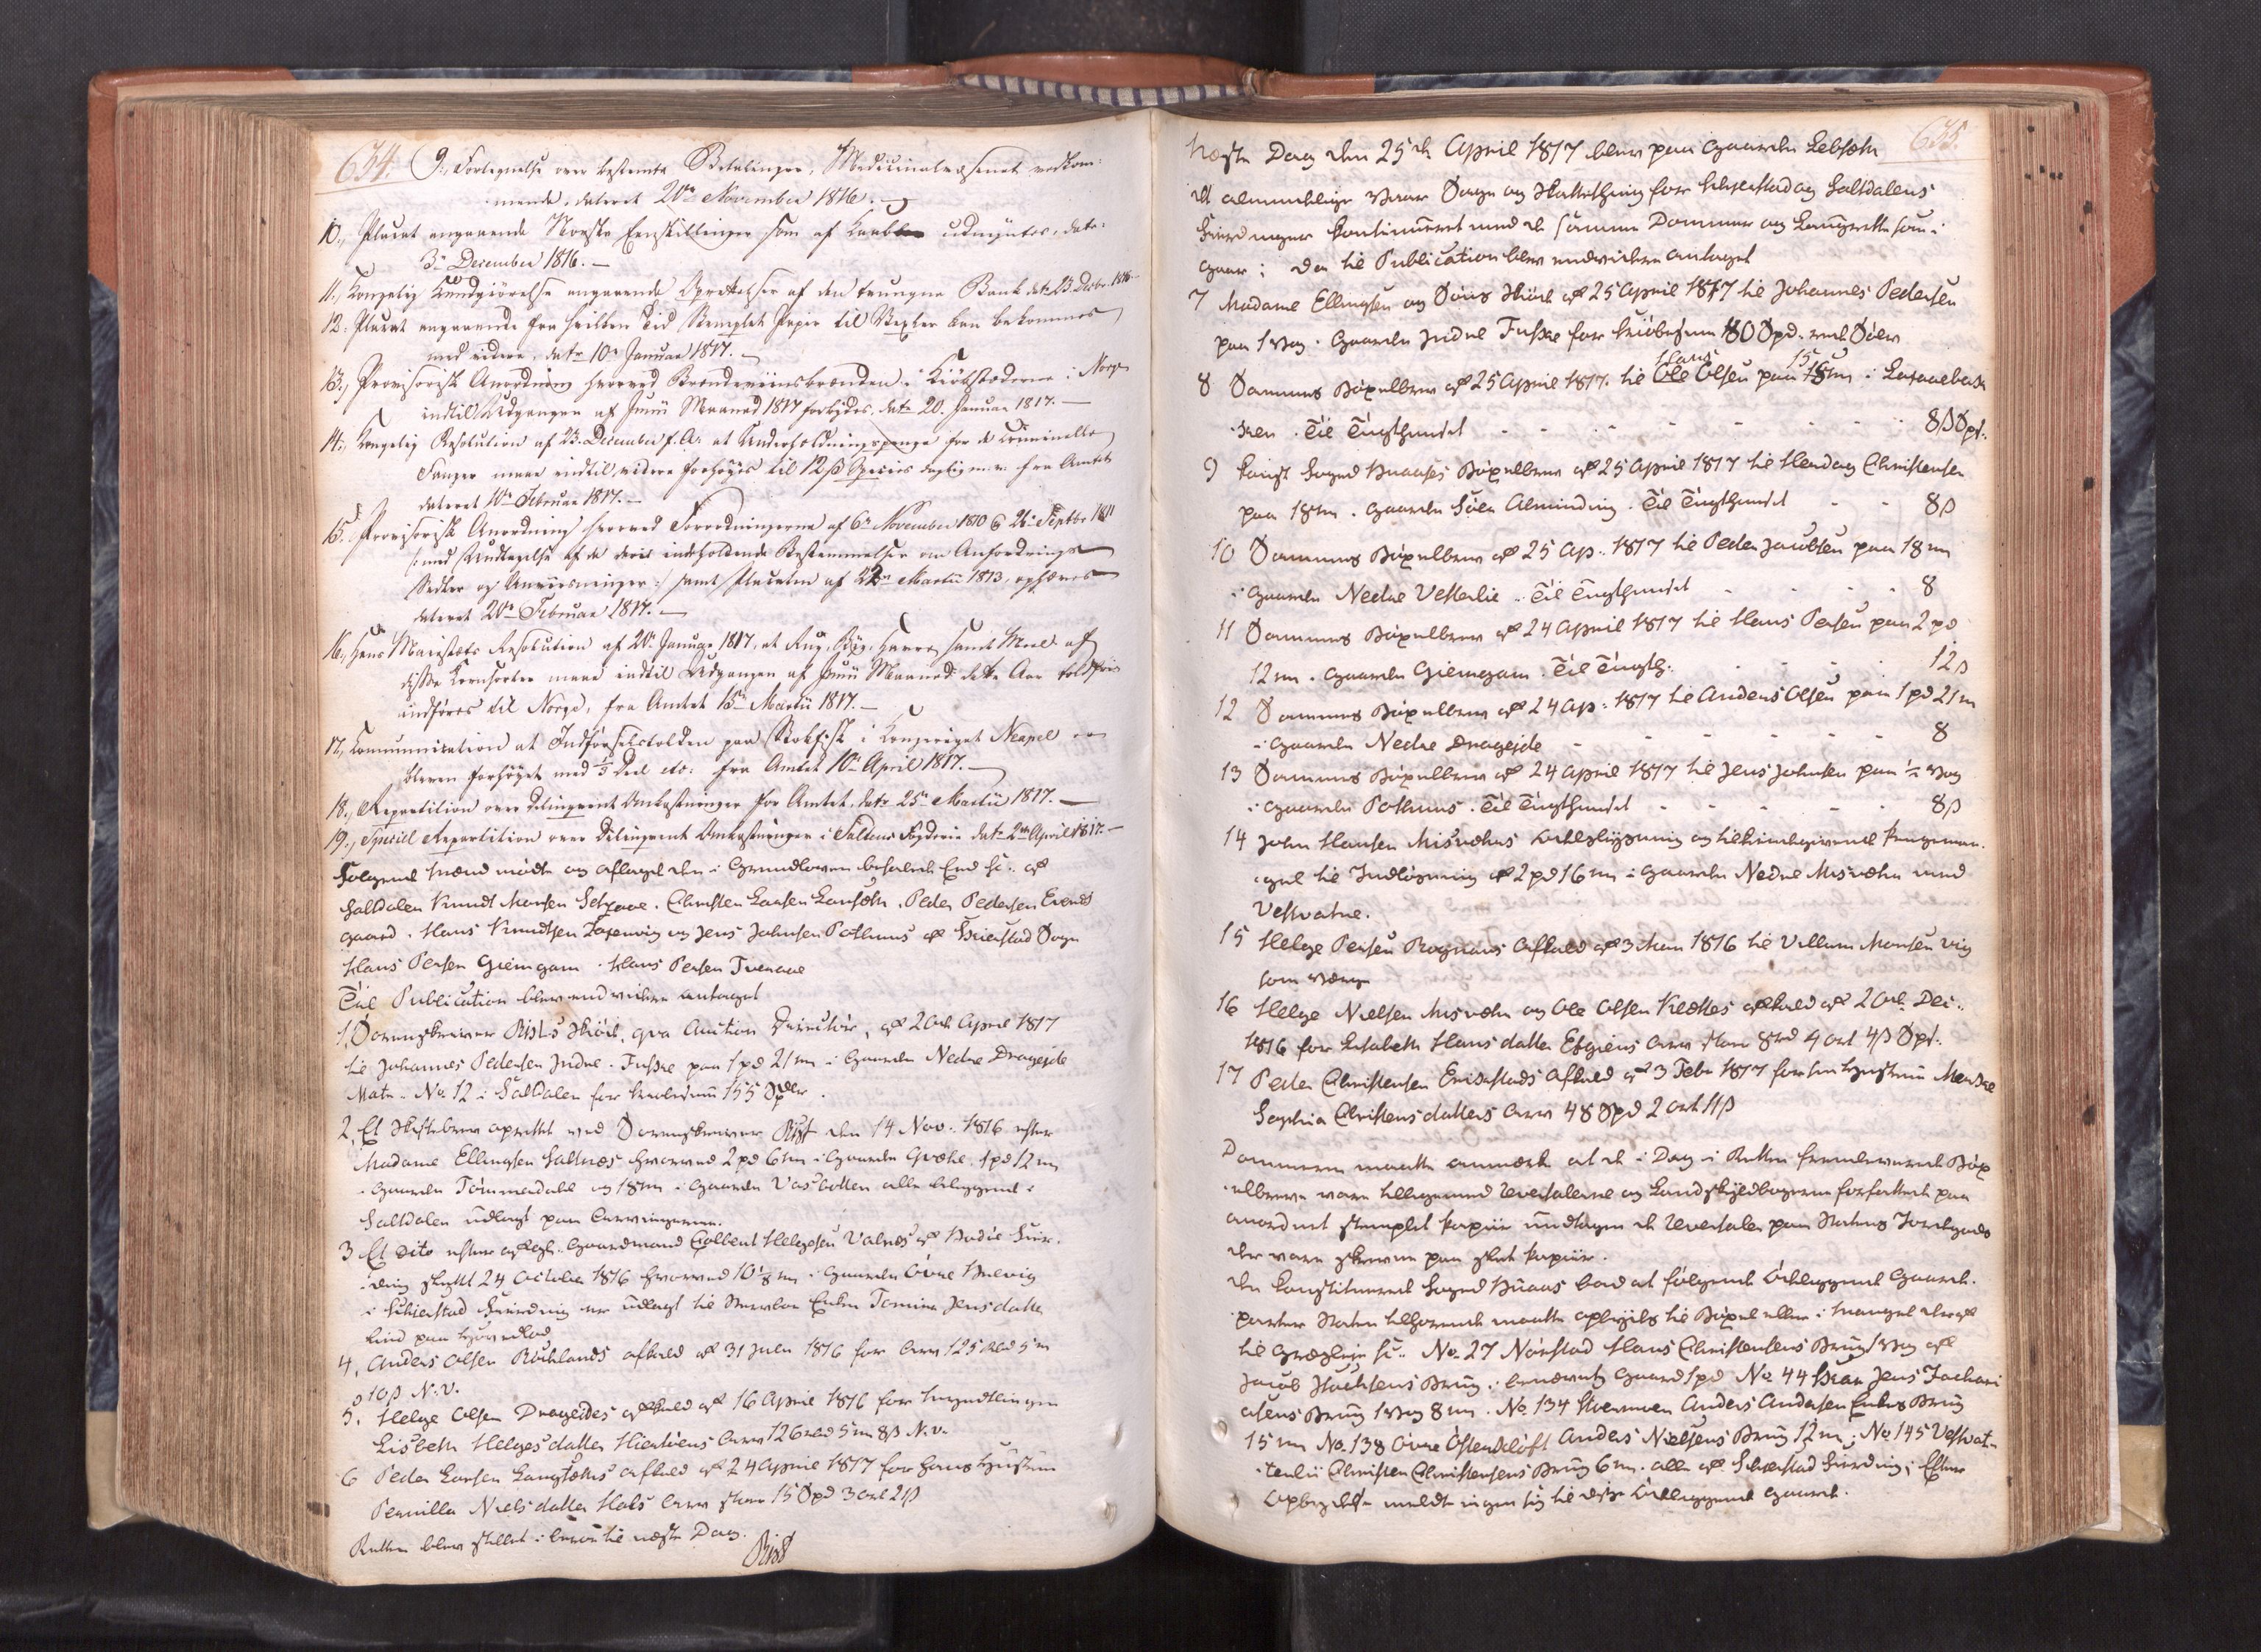 634.
9., Fortegnelse over bestemte Betalinger, Medicinalvæsenet vedkom-
mende, dateret 20de November 1816.
10., Placat angaaende Norske Eenskillinger som af Kaabber udmyntes, date:
3de December 1816.
11., Kongelig Kundgiörelse angaaende Oprettelse af den trungne Bank dat: 23 Decbr. 1816
12. Placat angaaende fra hvilken Tid Stemplet Papir til Vexler kan bekommes
med videre, dat: 10de Januar 1817.
13., Provisorisk Anordning hvorved Brændeviinsbrænden i Kiöbstæderne i Norge
indtil Udgangen af Junii Maaned 1817 forbydes, dat: 20. Januar 1817.
14., Kongelig Resolution af 23. December f. A. at Underholdningspenge for de Criminelle
Fanger maae indtil videre forhöyes til 12 ß Species daglig m.v. fra Amtet
dateret 10de Februar 1817.
15. Provisorisk Anordning hvorved Forordningerne af 6te November 1810 & 26de Septbr 1811
/: med Undtagelse af de deri indeholdende Bestemmelser om Anfordrings
Sedler og Anviisninger :/ samt Placaten af 22de Martii 1813, ophæves
dateret 20de Februar 1817.
16., Hans Majestæts Resolution af 20de Januar 1817, at Rug, Byg, Havre samt Meel af
disse Kornsorter maae indtil Udgangen af Junii Maaned dette Aar toldfrie
indföres til Norge, fra Amtet 15de Martii 1817.
17., Communication at Indförselstolden paa Stokfisk i Kongeriget Neapel er
bleven forhöyet med 1/3 Deel etc: fra Amtet 10de April 1817.
18., Repartition over Delinqvent Omkostninger for Amtet, dat: 25de Martii 1817.
19., Speciel Repartition over Delinqvent Omkostninger i Saltens Fogderie dat: 2den April 1817.
Fölgende Mænd mödte og aflagde den i Grundloven befalede Eed sc: af
Saltdalen Knudt Monsen, Christen Larsen, Peder Pedersen Evends
gaard. Hans Knudtsen og Jens Johnsen Pothuus af Skierstad Sogn
Hans Persen Giemgam. Hans Persen Tveraae
Til Publication blev endvidere antaget
1, Sorenskriver Rist's Skiöde, qva Auction Directör, af 20de April 1817
til Johannes Pedersen Indre-Fuskee paa 1 pd 21 m i Gaarden Nedre Drageide
Matr. No. 12 i Saltdalen for Kiöbesum 155 Spdlr.
2, Et Skiftebrev oprettet ved Sorenskriver Rist den 14 Nov. 1816 efter
Madame Ellingsen Saltnæs hvorved 2 pd 6 m i Gaarden, 1 pd 12 m
i Gaarden Tömmerdahl og 18 m i Gaarden Vasbotten alle beliggende i
Saltdalen udlagt paa Arvingerne.
3 Et dito efter afdöde Gaardmand Colbent Helgesen Valnæs af Bodöe Fier-
ding sluttet 24 October 1816 hvorved 10 1/8 m i Gaarden Övre
i Skierstad Fierding er udlagt til Enken Jensdatter
4, Anders Olsen Rochlands afkald af 31 Julii 1816 for Arv 125 rbd 5 m
10 ß N.V.
5. Helge Olsen Drageides afkald af 16 April 1816 for Myndtlingen
Lisbeth Helgesdatter Arv 126 rbd 5 m 8 ß N.V.
6 Peder Larsen afkald af 24 April 1817 for hans Hustrue
Pernilla Nielsdatter Arv stor 15 Spd 3 ort 21 ß
Retten blev stillet i beroe til næste Dag.
Rist
635.
Næste Dag den 25de April 1817 blev paa Gaarden Lebseth
det almindelige Vaar Sage og Skattething for Skierstad og Saltdalens
Fierdinger Kontinueret med de samme Dommer og Laugrette som i
Gaar; da til Publication blev endvidere antaget
7 Madame Ellingsen og Söns Skiöde af 25 April 1817 til Johannes Pedersen
paa 1 Vog i Gaarden Indre Fuskee for Kiöbesum 180 Spd. rede Sölv
8 Sammes Böxelbrev af 25 April 1817 til Hans Olsen paa 15 m i
Til Tingsvidnet - - - 8 ß Spe.
9 Const Foged Bernaas Böxelbrev af 25 April 1817 til Christensen
paa 18 m i Gaarden Alminding. Til Tingsvidnet - - 8 ß
10 Sammes Böxelbrev af 25 Ap. 1817 til Peder Jacobsen paa 18 m
i Gaarden Nedre Vesterlie. Til Tingsvidnet - - 8
11 Sammes Böxelbrev af 24 April 1817 til Hans Persen paa 2 pd
12 m i Gaarden Giemgam. Til Tingsv. - - 12 ß
12 Sammes Böxelbrev af 24 Ap. 1817 til Anders Olsen paa 1 pd 21 m
i Gaarden Nedre Drageide - - 8
13 Sammes Böxelbrev af 24 April 1817 til Jens Johnsen paa 1/2 Vog
i Gaarden Pothuus. Til Tingsvidnet - - 8 ß
14 John Hansen Misværs Odelslysning og tilkiendegivende Pengeman-
gel til Indlösning af 2 pd 16 m i Gaarden Nedre Misvær med
Vestvatne.
15 Helge Persen Rognans Afkald af 3 Mai 1816 til Villum Monsen Vig
som Værge
16 Helge Nielsen Misvær og Ole Olsen Kletkes afkald af 20de Dec:
1816 for Lisabeth Hansdatter Arv stor 8 rd 4 ort 4 ß Spe.
17 Peder Christensen Afkald af 3 Febr 1817 for sin Hustrue
Sophia Christensdatters Arv 48 Spd 2 ort 11 ß
Dommeren maatte anmærke at de i Dag i Retten fremleverede Böx-
elbreve vare tilligemed Reversalerne og Landskyldbogerne forfattede paa
anordnet stemplet Papiir undtagen de Reversaler paa Statens Jordegods
der vare skreven paa slet Papiir.
Den Constituerede Foged Bernaas bad at fölgende Ödeliggende Gaarde-
parter Staten tilhörende maatte opbydes til Böxel eller i Mangel deraf
til Græsleje sc: No. 27 Nörstad Hans Christensens Brug 1 Vog af
Jacob Isachsens Brug i Gaard 1 pd No. 44 Jens Zachari
asens Brug 1 Vog 8 m. No. 134 Anders Andersen Enkes Brug
15 m No. 138 Övre Österklöft Anders Nielsens Brug 12 m; No. 145 Vestvat-
tenlii Christen Christensens Brug 6 m. alle af Skierstad Fierding; Efter
Opbydelse meldte ingen sig til disse Ödeliggende Gaarde.